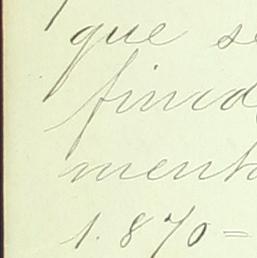 que se
fincó
ment
1.870=